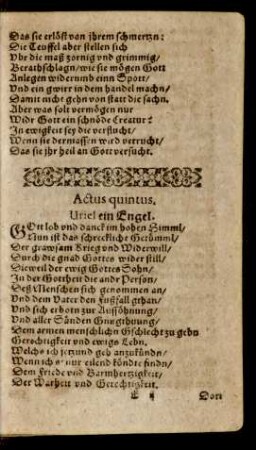 Das sie erlöst von jhrem schmertzn:
Die Teuffel aber stellen sich
Vbr die maß zornig vnd grimmig/
Berathschlagn/wie sie mögen Gott
Anlegen widerumb einn Spott/
Vnd ein gwirr in dem handel machn/
Damit nicht gehn von statt die sachn.
Aber was solt vermögen nur
Widr Gott ein schnöde Creatur?
In ewigkeit sey die verflucht/
Wenn sie dermassen wird verrucht/
Das sie jhr heil an Gott versucht.
Actus quintus.
Uriel ein Engel.
GOtt lob vnd danck im hohen Himml/
Nun ist das schrecklicht Getümml/
Der grawsam Krieg vnd Widerwill/
Durch die gnad Gottes wider still/
Dieweil der ewig Gottes Sohn/
In der Gottheit die ander Person/
Deß Menschen sich genommen an/
Vnd dem Vater den Fußfall gthan/
Vnd sich erbotn zur Außsöhnung/
Vnd aller Sünden Gnugthuung/
Dem armen menschlichn Gschlecht zu gebn
Gerechtigkeit vnd ewigs Lebn.
Welchs ich jetzund geh anzukündn/
Wenn ich nur eilend köndte findn/
Dem Friede vnd Barmhertzigkeit/
Der Warheit vnd Gerechtigkeit.
Dort